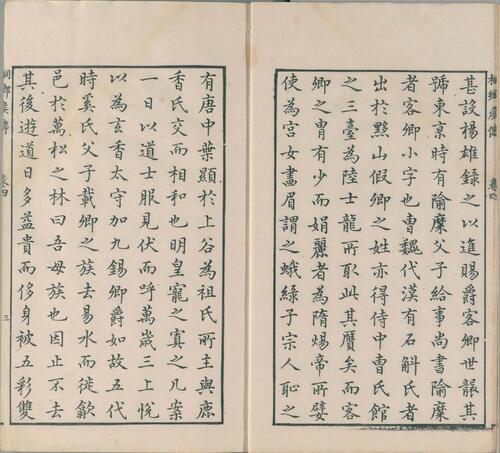 甚設楊雄錄之以進賜爵客卿世襲其
號東京時有隃糜父子給事尚書隃糜
者客卿小字也曹魏代漢有石斛氏者
出於黟山假卿之姓亦得侍中曹氏館
之三臺為陸士龍所取此其贋矣而客
卿之冑有少而娟麗者為隋煬帝所嬖
使為宮女畫眉謂之蛾綠子宗人恥之
有唐中葉顯於上谷為祖氏所主與麝
香氏交而相和也明皇寵之寘之几案
一日以道士服見伏而呼萬歲三上悅
以為玄香太守加九錫卿爵如故五代
時奚氏父子載卿之族去易水而徙歙
邑於萬松之林曰吾母族也因止不去
其後遊道日多益貴而侈身被五彩雙
卷四
三